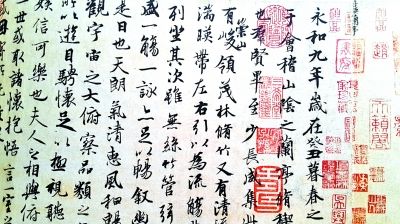 永和九年歲在癸丑暮春之
于會稽山陰之蘭亭脩稧
也群賢畢至少長咸集此
有崇山峻領茂林脩竹又有清
湍暎帶左右引以為流觴
列坐其次雖無絲竹管弦
盛一觴一詠亦足以暢敘幽
是日也天朗氣清惠風和暢
觀宇宙之大俯察品類之
所以遊目騁懷足以極視聽
娛信可樂也夫人之相與俯
一世或取諸懷抱悟言一室之